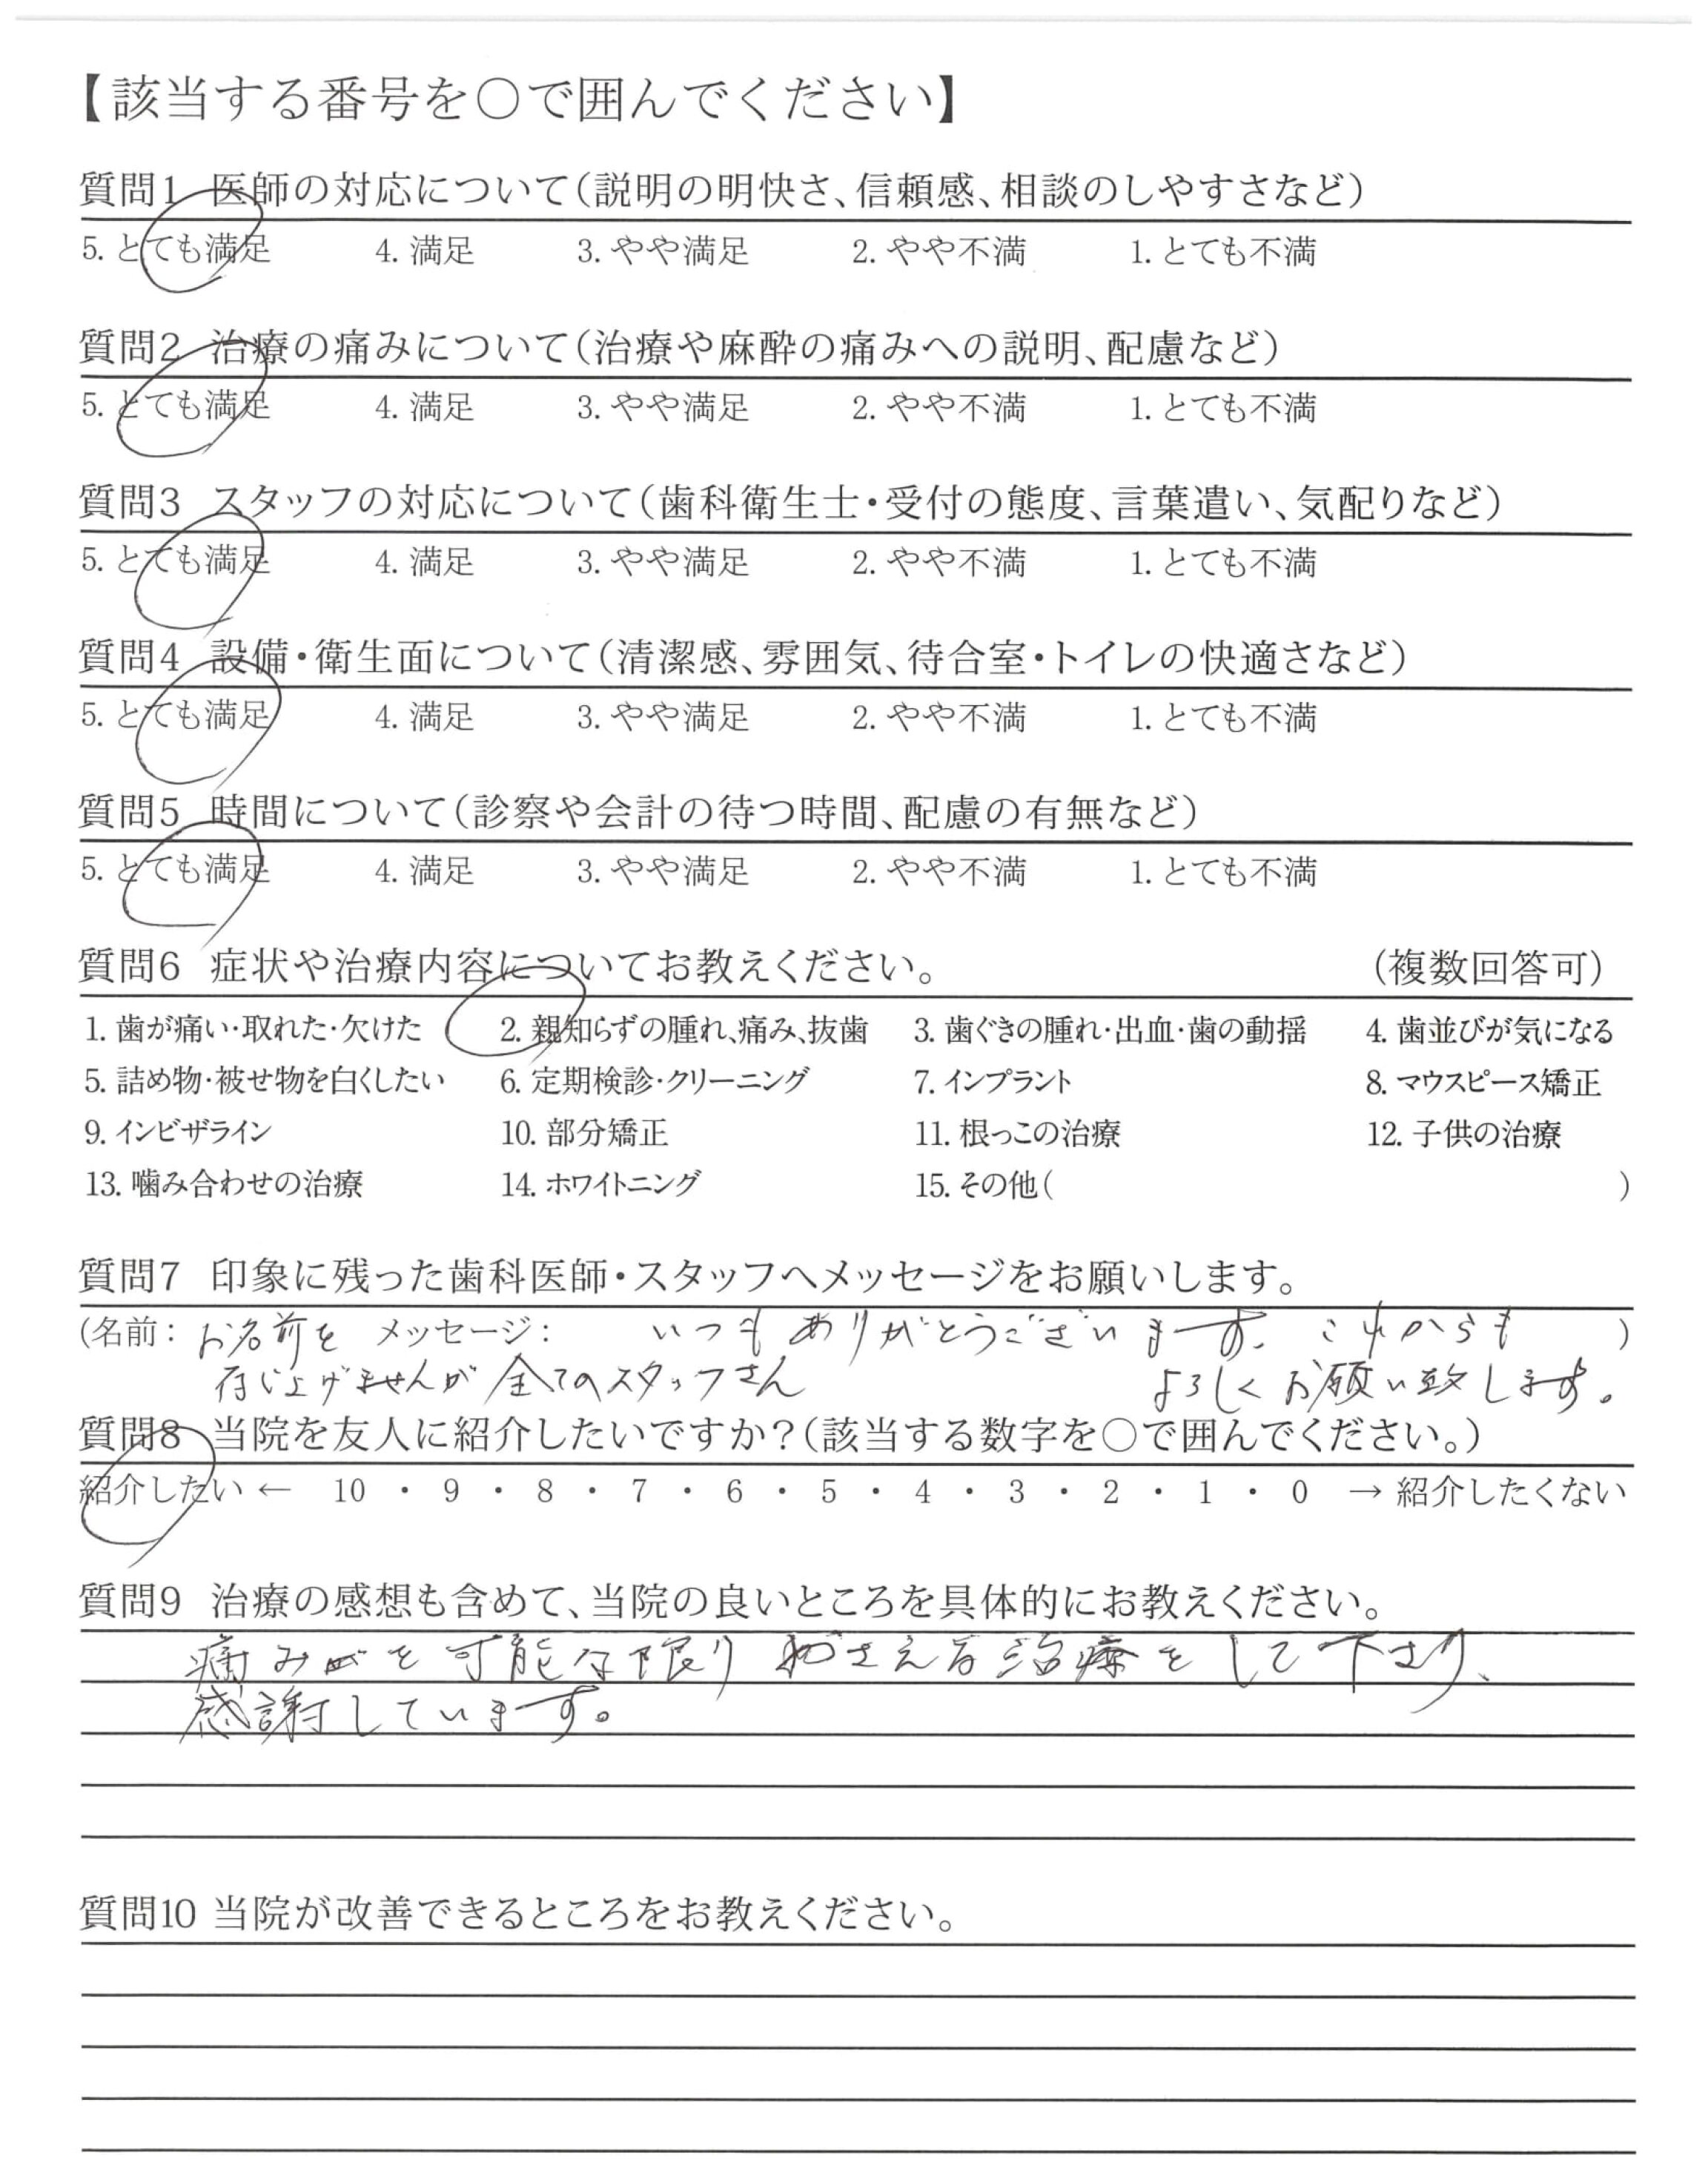 【該当する番号を〇で囲んでください】
質問1 医師の対応について(説明の明快さ、信頼感、相談のしやすさなど)
5. とても満足 4. 満足 3. やや満足 2. やや不満 1. とても不満
質問2 治療の痛みについて(治療や麻酔の痛みへの説明、配慮など)
5. とても満足 4. 満足 3. やや満足 2. やや不満 1. とても不満
質問3 スタッフの対応について(歯科衛生士・受付の態度、言葉遣い、気配りなど)
5. とても満足 4. 満足 3. やや満足 2. やや不満 1. とても不満
質問4 設備・衛生面について(清潔感、雰囲気、待合室・トイレの快適さなど)
5. とても満足 4. 満足 3. やや満足 2. やや不満 1. とても不満
質問5 時間について(診察や会計の待つ時間、配慮の有無など)
5. とても満足 4. 満足 3. やや満足 2. やや不満 1. とても不満
質問6 症状や治療内容についてお教えください。 (複数回答可)
1. 歯が痛い・取れた・欠けた 2. 親知らずの腫れ、痛み、抜歯 3. 歯ぐきの腫れ・出血・歯の動揺 4. 歯並びが気になる
5. 詰め物・被せ物を白くしたい 6. 定期検診・クリーニング 7. インプラント 8. マウスピース矯正
9. インビザライン 10. 部分矯正 11. 根っこの治療 12. 子供の治療
13. 噛み合わせの治療 14. ホワイトニング 15. その他( )
質問7 印象に残った歯科医師・スタッフへメッセージをお願いします。
(名前: お名前を メッセージ: いつもありがとうございます。これからも )
存じ上げませんが全てのスタッフさん よろしくお願い致します。
質問8 当院を友人に紹介したいですか?(該当する数字を〇で囲んでください。)
紹介したい ← 10 ・ 9 ・ 8 ・ 7 ・ 6 ・ 5 ・ 4 ・ 3 ・ 2 ・ 1 ・ 0 → 紹介したくない
質問9 治療の感想も含めて、当院の良いところを具体的にお教えください。
痛みを可能な限りおさえる治療をして下さり、
感謝しています。
質問10 当院が改善できるところをお教えください。